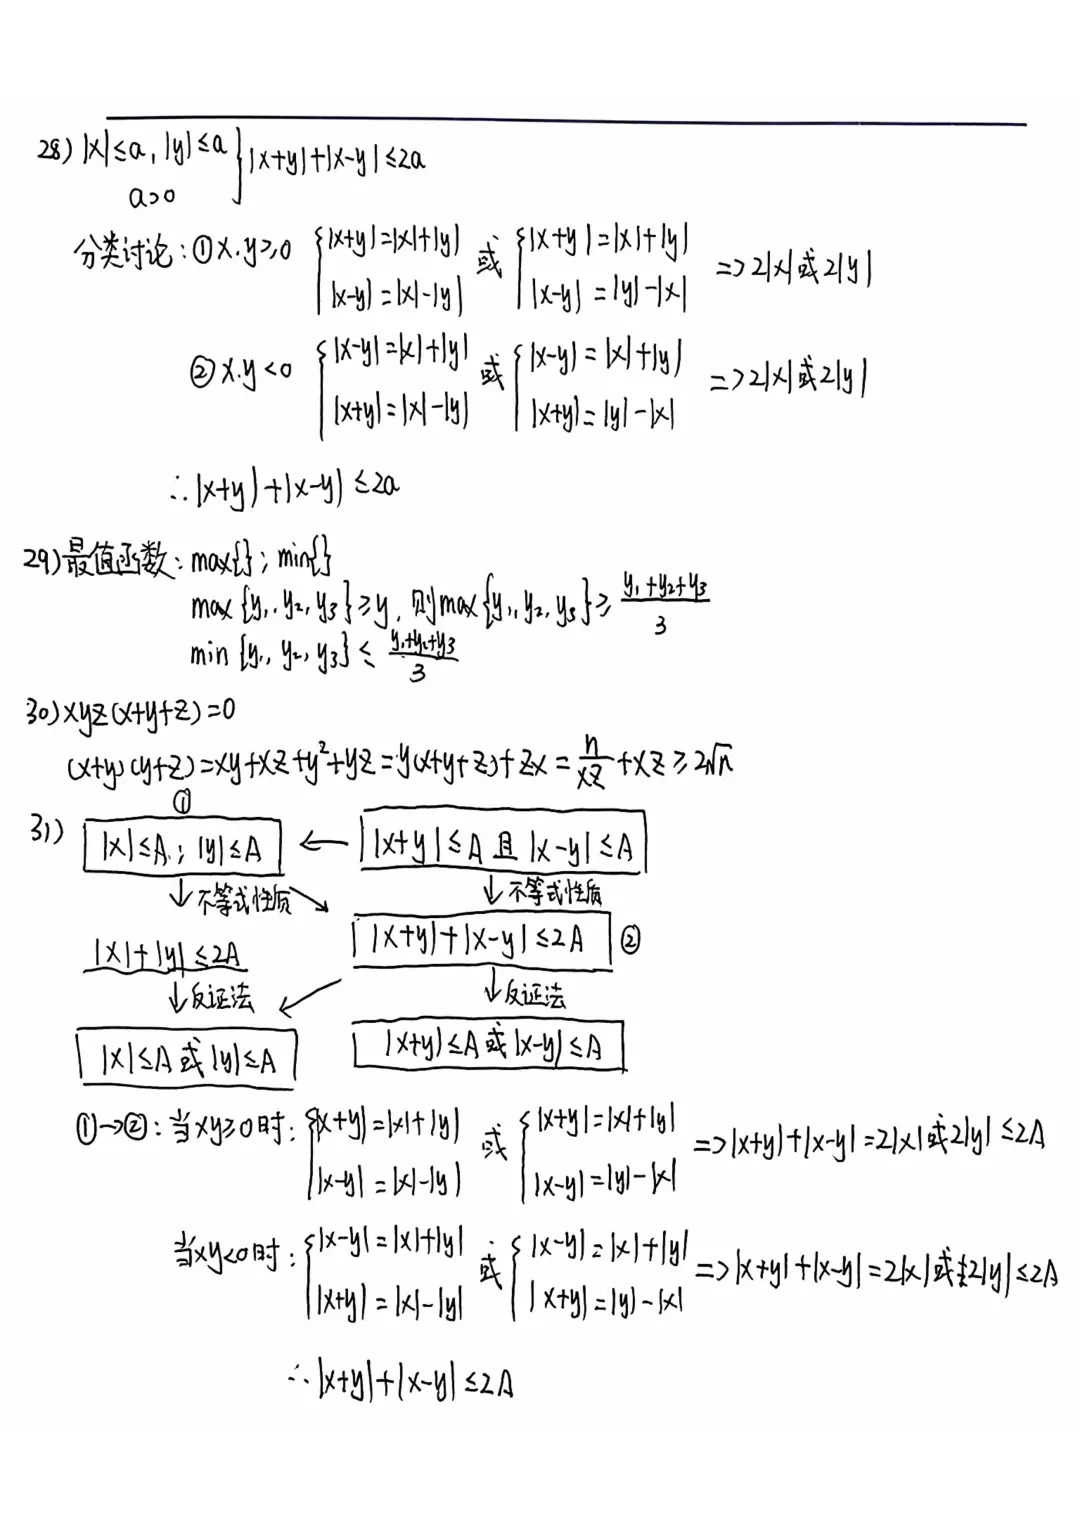 28) |x|≤a, |y|≤a } |x+y|+|x-y|≤2a
a>0
分类讨论: ①x·y≥0 { |x+y|=|x|+|y| 或 { |x+y|=|x|+|y| => 2|x|或2|y|
|x-y|=|x|-|y| |x-y|=|y|-|x|
②x·y<0 { |x-y|=|x|+|y| 或 { |x-y|=|x|+|y| => 2|x|或2|y|
|x+y|=|x|-|y| |x+y|=|y|-|x|
∴|x+y|+|x-y|≤2a
29) 最值函数: max{}; min{}
max{y₁,y₂,y₃}≥y, 则max{y₁,y₂,y₃}≥(y₁+y₂+y₃)/3
min{y₁,y₂,y₃}≤(y₁+y₂+y₃)/3
30) xyz(x+y+z)=0
(x+y)(y+z)=xy+xz+y²+yz=y(x+y+z)+zx=n/xz+xz≥2√n
①
31) |x|≤A; |y|≤A ← |x+y|≤A 且 |x-y|≤A
↓不等式性质 ↘ ↓不等式性质
|x|+|y|≤2A |x+y|+|x-y|≤2A ②
↓反证法 ↙ ↓反证法
|x|≤A 或 |y|≤A |x+y|≤A 或 |x-y|≤A
①→②: 当xy≥0时: { |x+y|=|x|+|y| 或 { |x+y|=|x|+|y| => |x+y|+|x-y|=2|x|或2|y|≤2A
|x-y|=|x|-|y| |x-y|=|y|-|x|
当xy<0时: { |x-y|=|x|+|y| 或 { |x-y|=|x|+|y| => |x+y|+|x-y|=2|x|或2|y|≤2A
|x+y|=|x|-|y| |x+y|=|y|-|x|
∴|x+y|+|x-y|≤2A